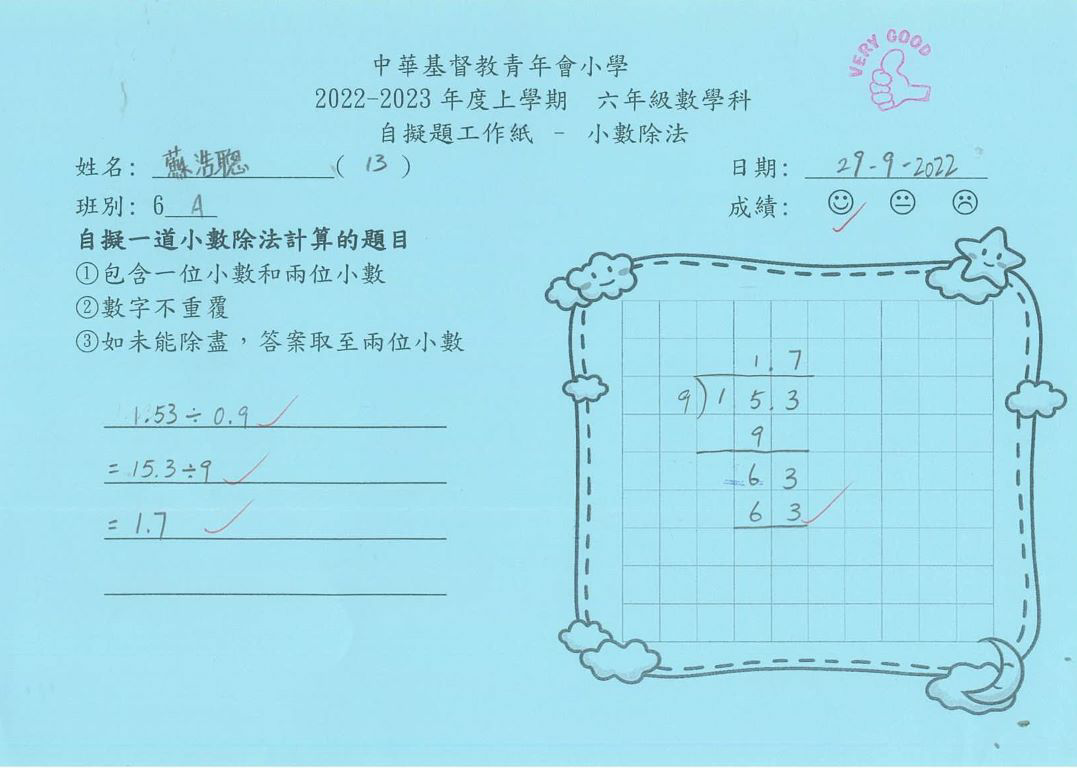 VERY GOOD
中華基督教青年會小學
2022-2023 年度上學期 六年級數學科
自擬題工作紙 - 小數除法
姓名: 蘇浩聰 ( 13 ) 日期: 29-9-2022
班別: 6 A 成績:
自擬一道小數除法計算的題目
①包含一位小數和兩位小數
②數字不重覆
③如未能除盡，答案取至兩位小數
1.53÷0.9
=15.3÷9
=1.7
1.7
9)15.3
9
63
63